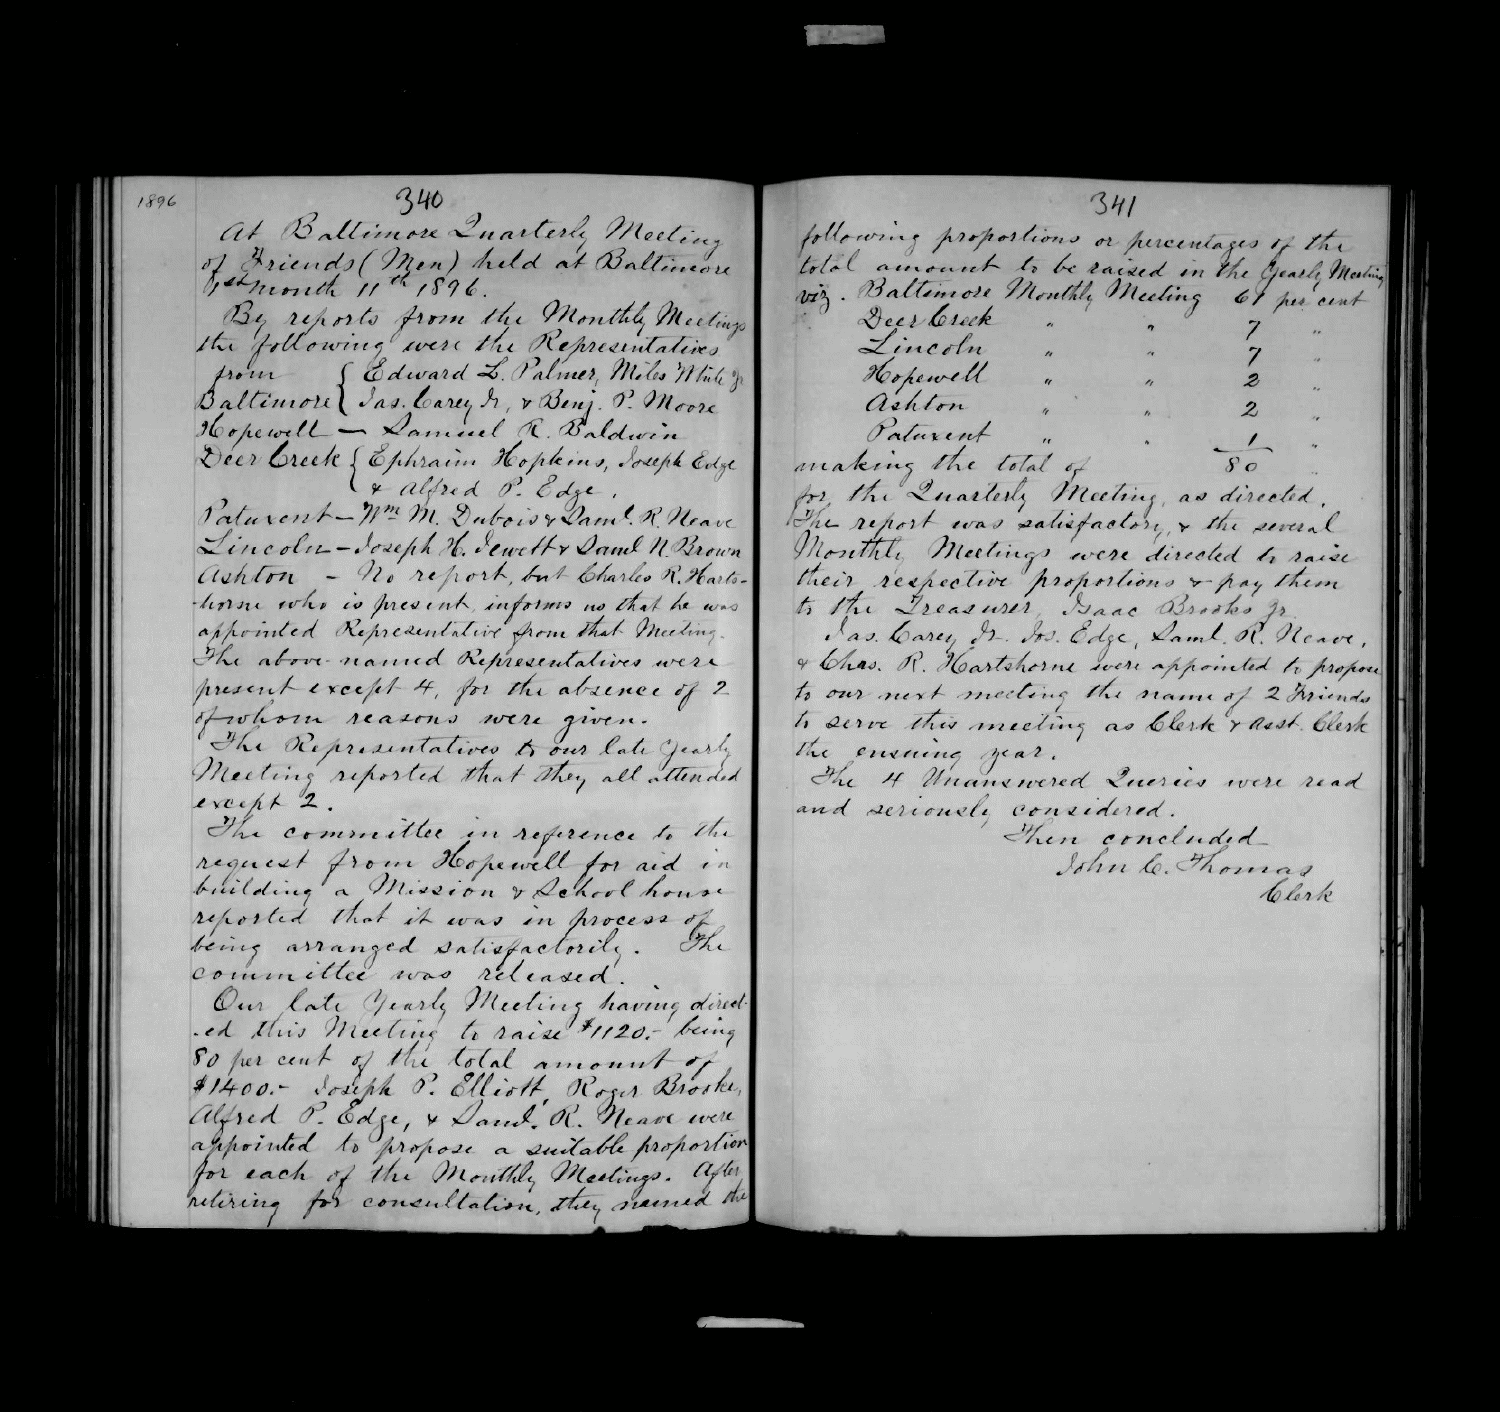 1896
340
At Baltimore Quarterly Meeting
of Friends (Men) held at Baltimore
1st month 11th 1896.
By reports from the Monthly Meetings
the following were the Representatives
from { Edward L. Palmer, Miles White Jr
Baltimore { Jas. Carey Jr, & Benj. P. Moore
Hopewell — Samuel R. Baldwin
Deer Creek { Ephraim Hopkins, Joseph Edge
& Alfred P. Edge.
Patuxent — Wm M. Dubois & Saml. R. Neave
Lincoln — Joseph H. Jewett & Saml N. Brown
Ashton - No report, but Charles R. Harts-
-horne who is present, informs us that he was
appointed Representative from that Meeting.
The above-named Representatives were
present except 4, for the absence of 2
of whom reasons were given.
The Representatives to our late Yearly
Meeting reported that they all attended
except 2.
The committee in reference to the
request from Hopewell for aid in
building a Mission & School house
reported that it was in process of
being arranged satisfactorily. The
committee was released.
Our late Yearly Meeting having direct-
-ed this Meeting to raise $1120.- being
80 per cent of the total amount of
$1400.- Joseph P. Elliott, Roger Brooke,
Alfred P. Edge, & Saml. R. Neave were
appointed to propose a suitable proportion
for each of the Monthly Meetings. After
retiring for consultation, they named the
341
following proportions or percentages of the
total amount to be raised in the Yearly Meeting
viz. Baltimore Monthly Meeting 61 per cent
Deer Creek " " 7 "
Lincoln " " 7 "
Hopewell " " 2 "
Ashton " " 2 "
Patuxent " " 1 "
making the total of 80 "
for the Quarterly Meeting, as directed.
The report was satisfactory, & the several
Monthly Meetings were directed to raise
their respective proportions & pay them
to the Treasurer, Isaac Brooks Jr.
Jas. Carey Jr. Jos. Edge, Saml. R. Neave,
& Chas. R. Hartshorne were appointed to propose
to our next meeting the name of 2 Friends
to serve this meeting as Clerk & Asst. Clerk
the ensuing year.
The 4 Unanswered Queries were read
and seriously considered.
Then concluded
John C. Thomas
Clerk